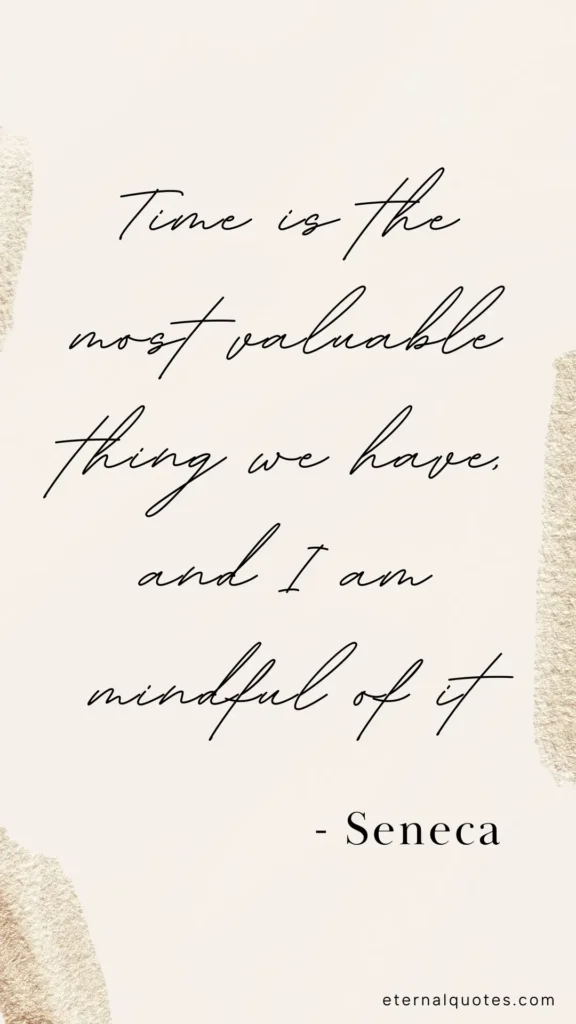 Time is the
most valuable
thing we have,
and I am
mindful of it
- Seneca
eternalquotes.com